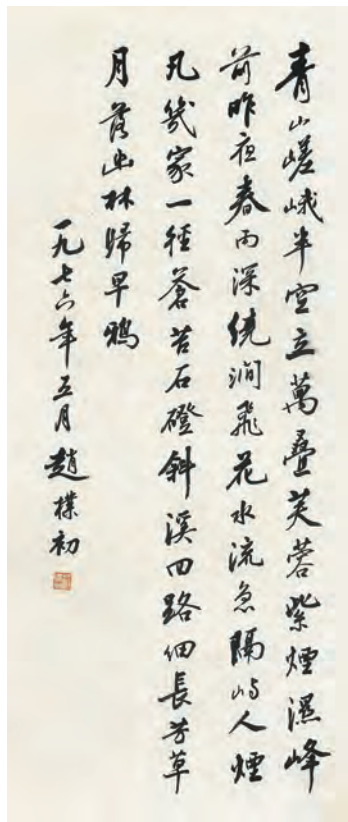 青山嵯峨半空立萬疊芙蓉紫煙濕峰
前昨夜春雨深繞澗飛花水流急隔嶼人煙
凡幾家一徑蒼苔石磴斜溪回路細長芳草
月落幽林歸早鴉
一九七六年五月趙樸初